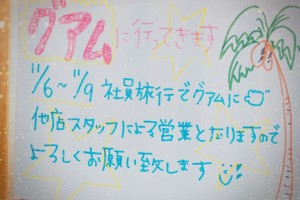 グアムに行ってきます
11/6～11/9 社員旅行でグアムに
他店スタッフによる営業となりますので
よろしくお願い致します